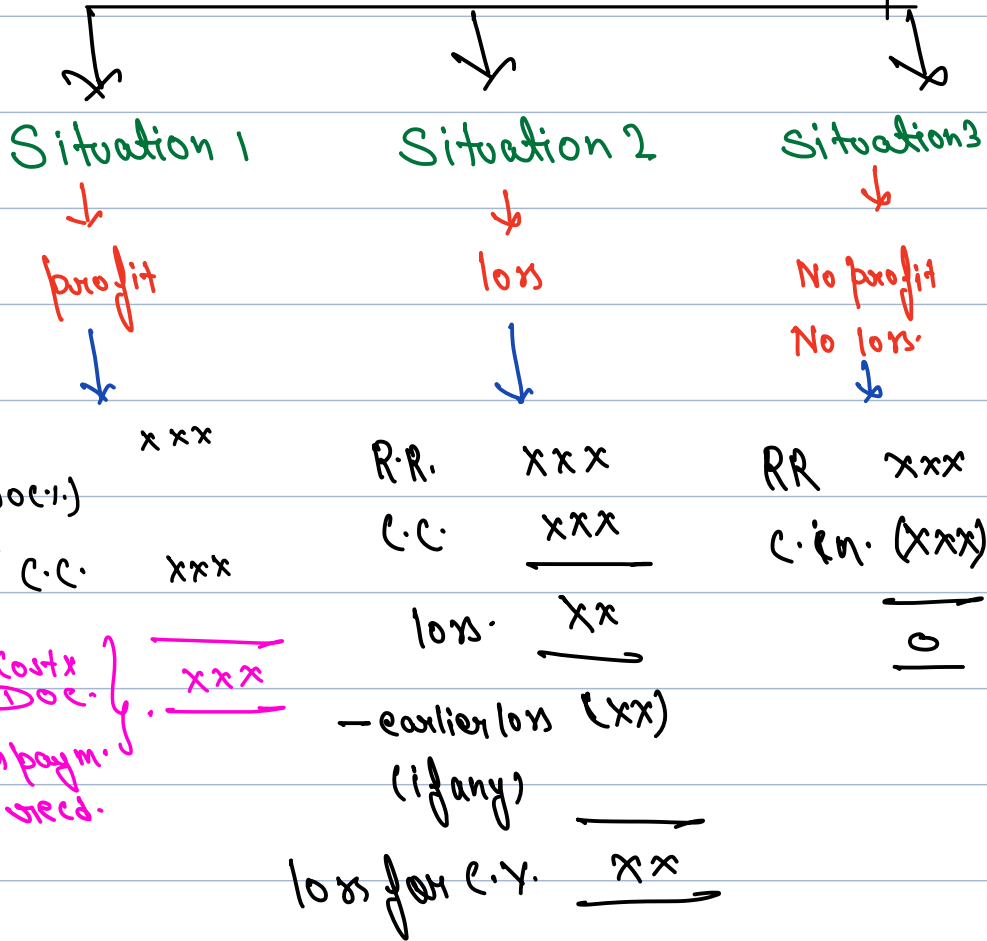 Situation 1
profit
xxx
C.C. xxx
Cost x
DOC.
paym.
recd.
xxx
Situation 2
loss
R.R. xxx
C.C. xxx
loss. xx
- earlier loss (xx)
(if any)
loss for C.Y. xx
Situation 3
No profit
No loss.
RR xxx
C. in. (xxx)
0